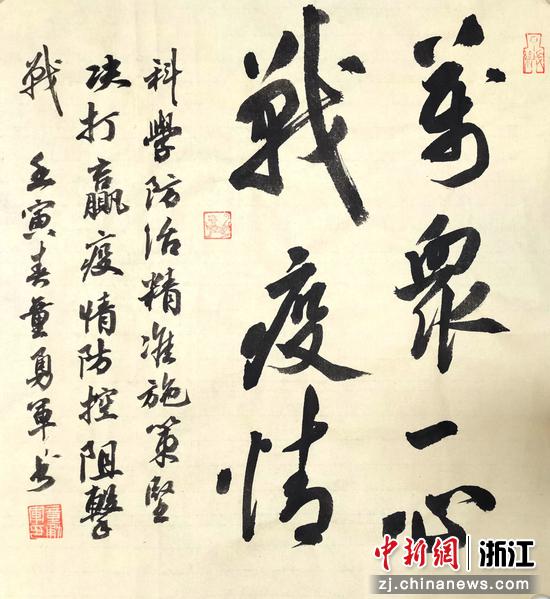 萬衆一心
戰疫情
科學防治精准施策堅
决打贏疫情防控阻擊
戰 壬寅春童勇軍书
中新網 浙江
zj.chinanews.com